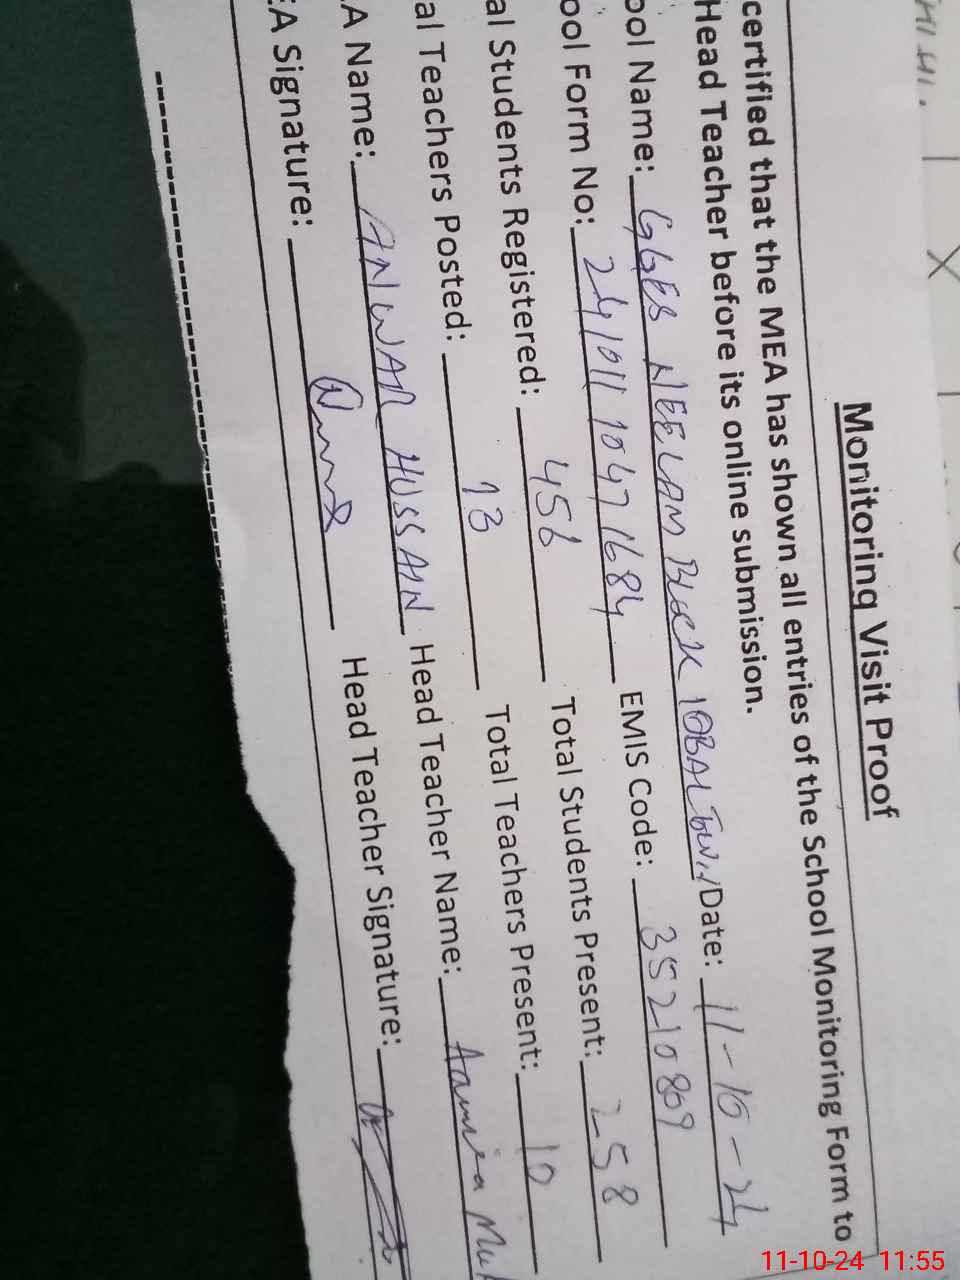 Monitoring Visit Proof
certified that the MEA has shown all entries of the School Monitoring Form to
Head Teacher before its online submission.
ool Name: GGES NEELAM Block IQBAL Town Date: 11-10-24
ool Form No: 241011 1047 1684 EMIS Code: 35210809
al Students Registered: 456 Total Students Present: 258
al Teachers Posted: 13 Total Teachers Present: 10
A Name: ANWAR HUSSAIN Head Teacher Name:
EA Signature: Head Teacher Signature:
11-10-24 11:55